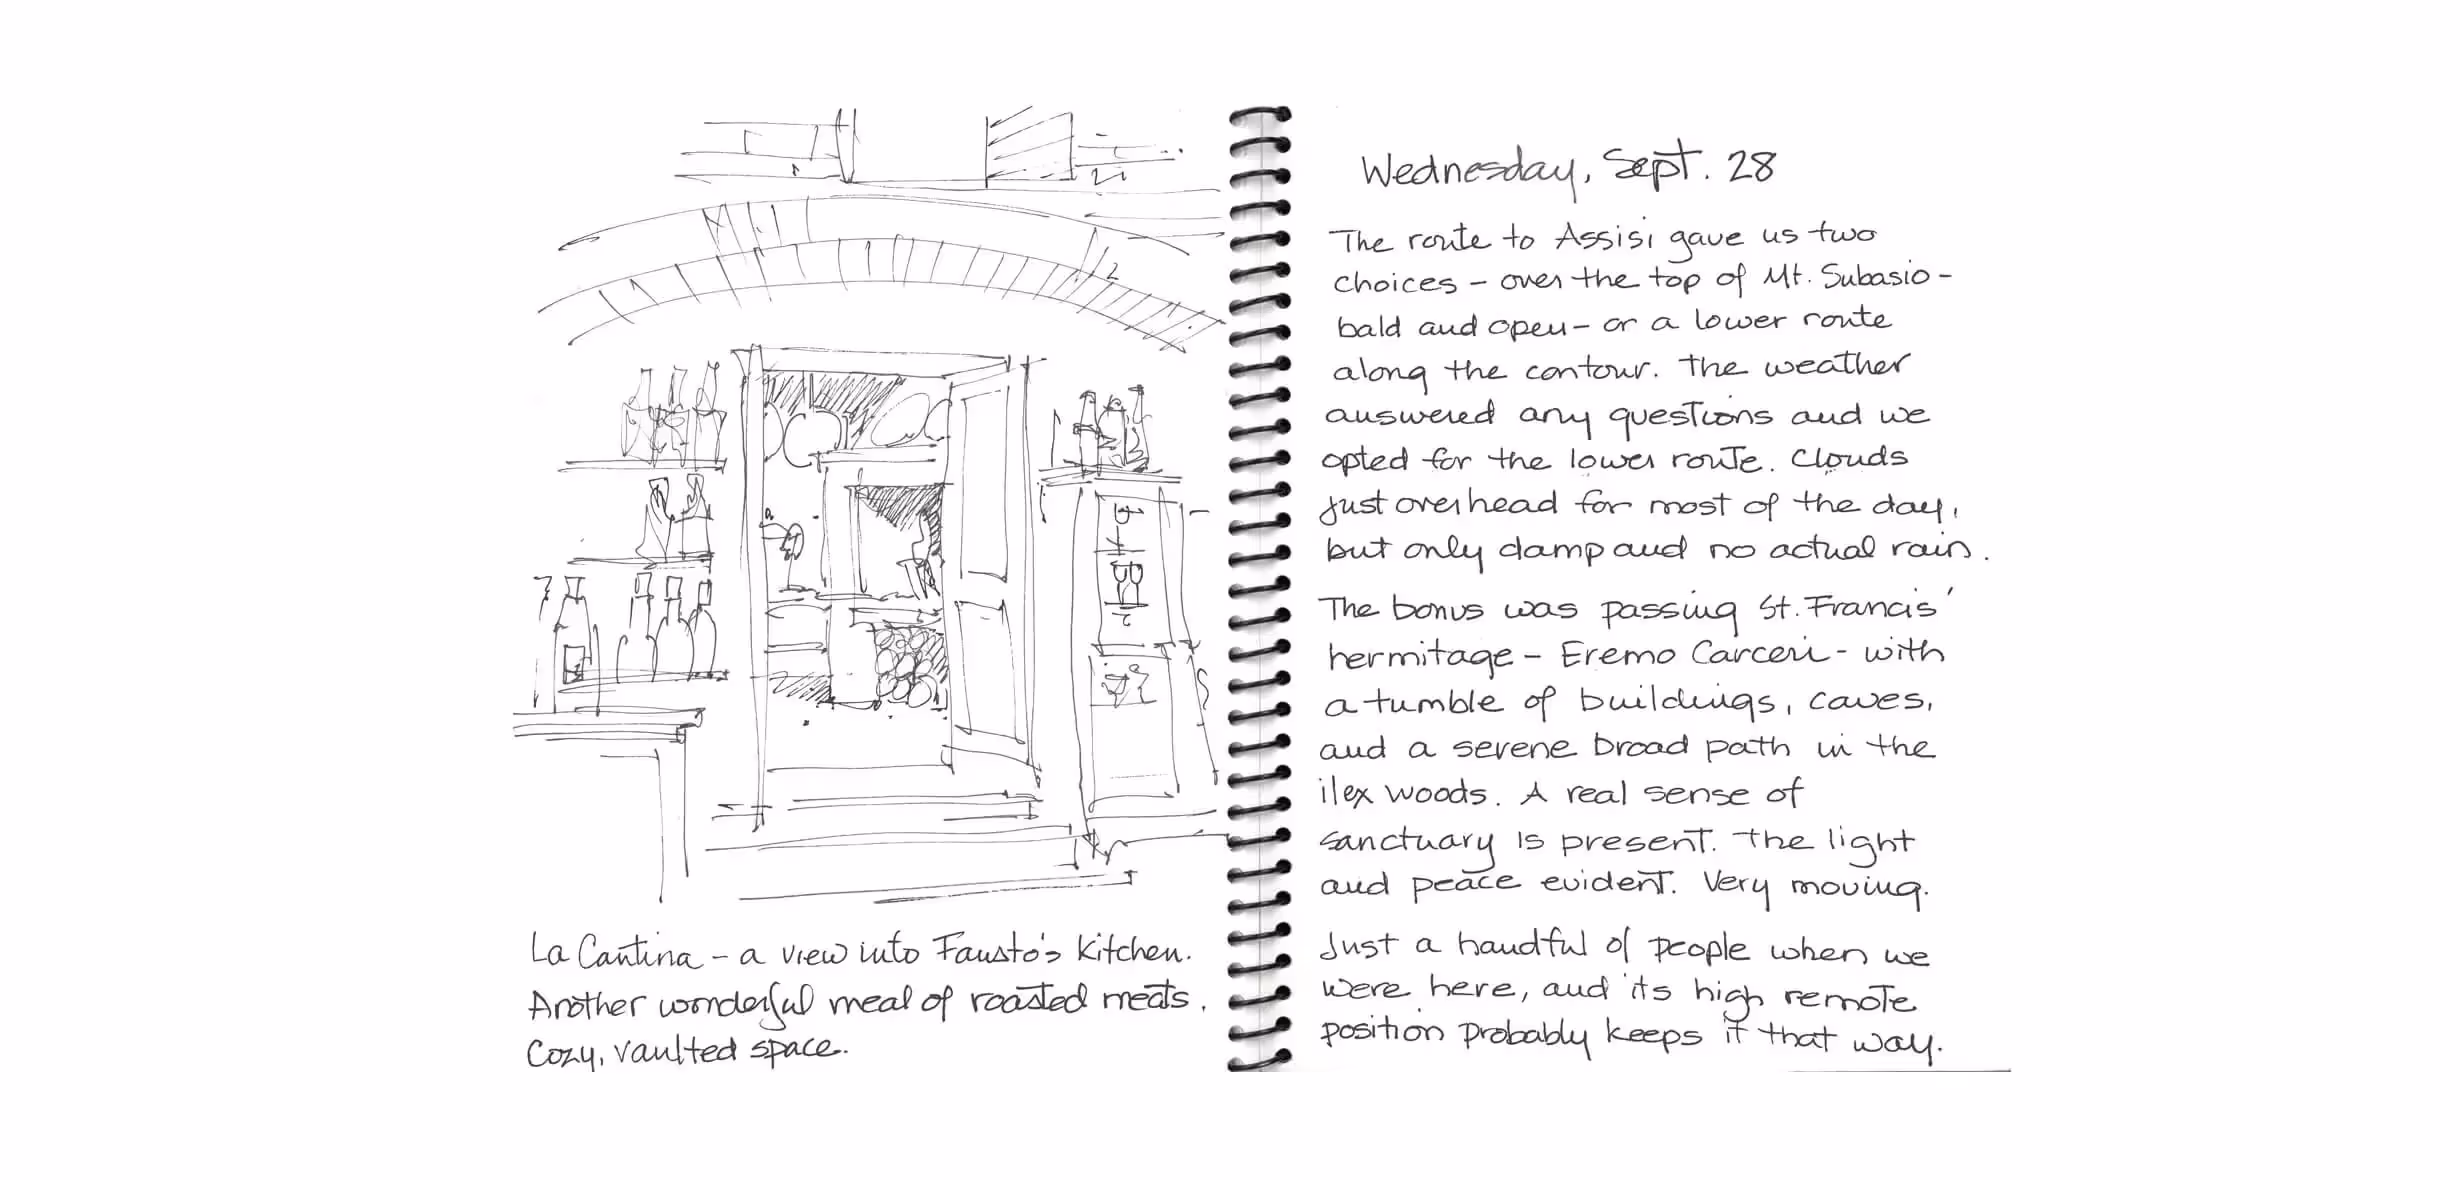 La Cantina - a view into Fausto's kitchen.
Another wonderful meal of roasted meats.
Cozy, vaulted space.
Wednesday, Sept. 28
The route to Assisi gave us two
choices - over the top of Mt. Subasio -
bald and open - or a lower route
along the contour. The weather
answered any questions and we
opted for the lower route. Clouds
just overhead for most of the day,
but only damp and no actual rain.
The bonus was passing St. Francis'
hermitage - Eremo Carceri - with
a tumble of buildings, caves,
and a serene broad path in the
ilex woods. A real sense of
sanctuary is present. The light
and peace evident. Very moving.
Just a handful of people when we
were here, and its high remote
position probably keeps it that way.